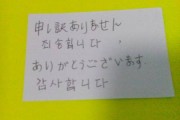 申し訳ありません
죄송합니다
ありがとうございます
감사합니다